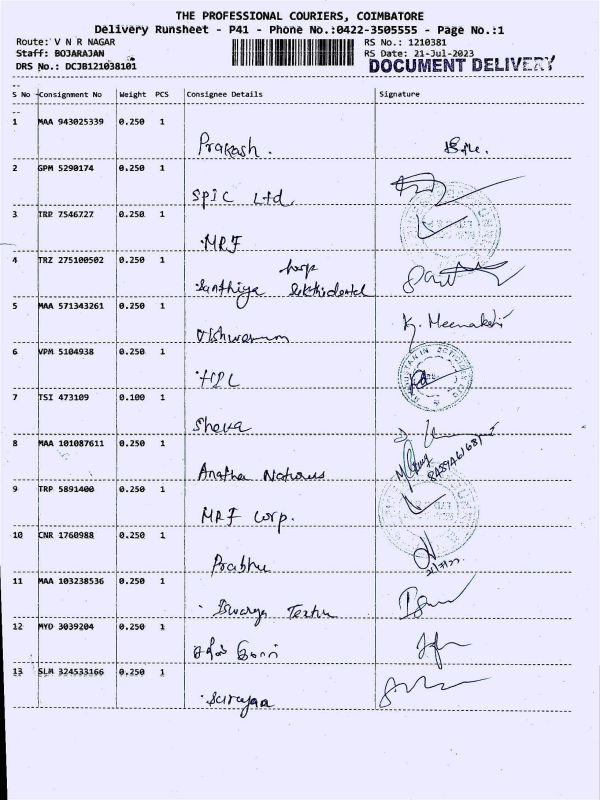 THE PROFESSIONAL COURIERS, COIMBATORE
Delivery Runsheet - P41 - Phone No.:0422-3505555 - Page No.:1
Route: V N R NAGAR RS No.: 1210381
Staff: BOJARAJAN RS Date: 21-Jul-2023
DRS No.: DCJB121038101 DOCUMENT DELIVERY
S No Consignment No Weight PCS Consignee Details Signature
1 MAA 943025339 0.250 1
Prakash.
2 GPM 5290174 0.250 1
SPIC Ltd
3 TRP 7546727 0.250 1
MRF
4 TRZ 275100502 0.250 1
Santhiya
5 MAA 571343261 0.250 1
K. Meenakshi
6 VPM 5104938 0.250 1
7 TSI 473109 0.100 1
8 MAA 101087611 0.250 1
9 TRP 5891400 0.250 1
MRF Corp.
10 CNR 1760988 0.250 1
Prabhu
21/7/23
11 MAA 103238536 0.250 1
12 MYD 3039204 0.250 1
13 SLM 324533166 0.250 1